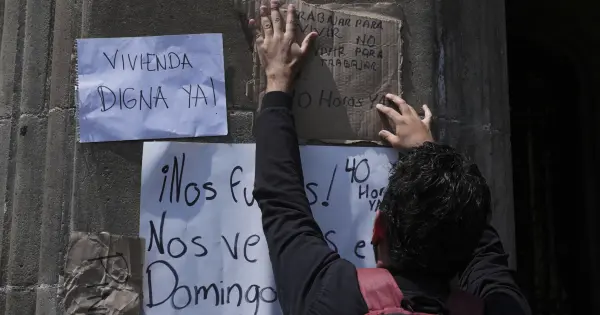 VIVIENDA
DIGNA YA!
TRABAJAR PARA
VIVIR NO
VIVIR PARA
TRABAJAR
40 Horas YA
¡Nos fu s!
40
Horas
YA
Nos ve e
Domingo